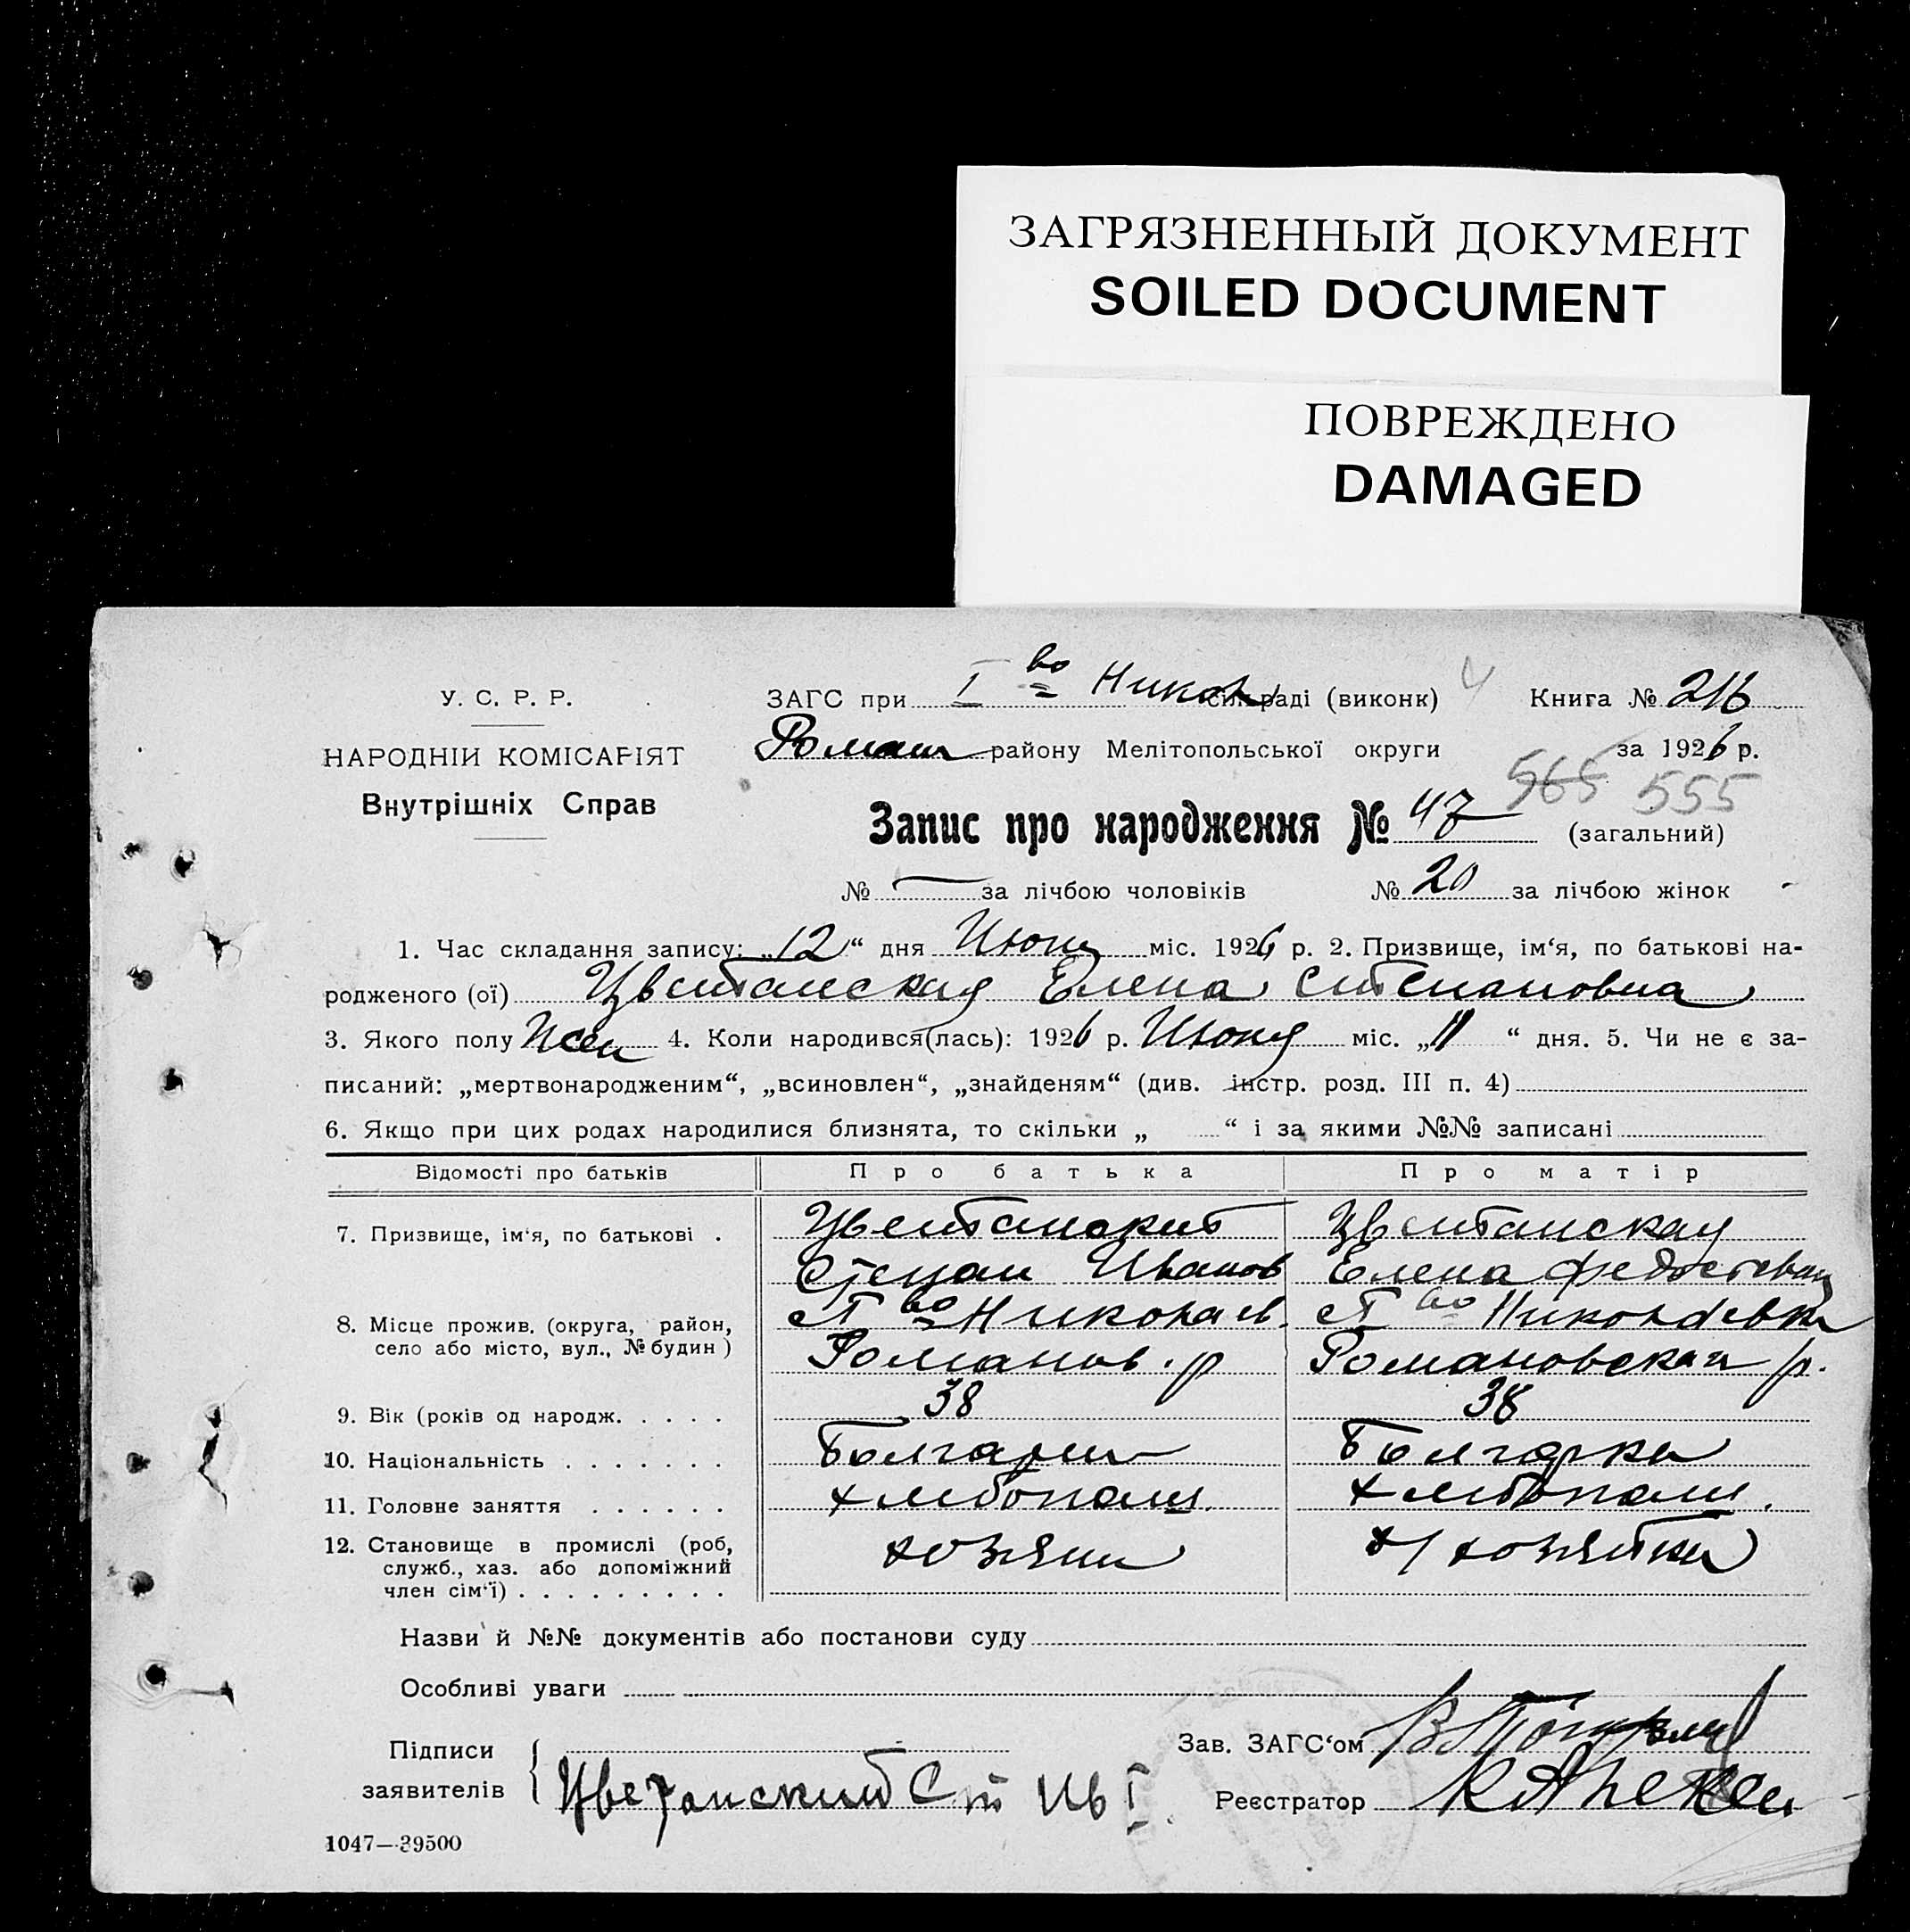 ЗАГРЯЗНЕННЫЙ ДОКУМЕНТ
SOILED DOCUMENT
ПОВРЕЖДЕНО
DAMAGED
У. С. Р. Р.
НАРОДНІЙ КОМІСАРІЯТ
Внутрішніх Справ
ЗАГС при I во Никол сільраді (виконк) 4 Книга № 216
Роман району Мелітопольської округи за 1926 р.
565 555
Запис про народження № 47 (загальний)
№ — за лічбою чоловіків № 20 за лічбою жінок
1. Час складання запису: „12“ дня Июня міс. 1926 р. 2. Призвище, ім‘я, по батькові на-
родженого (ої) Цветанская Елена Степановна
3. Якого полу Жен 4. Коли народився(лась): 1926 р. Июня міс. „11“ дня. 5. Чи не є за-
писаний: „мертвонародженим“, „всиновлен“, „знайденям“ (див. інстр. розд. III п. 4)
6. Якщо при цих родах народилися близнята, то скільки „ “ і за якими №№ записані
Відомості про батьків Про батька Про матір
7. Призвище, ім‘я, по батькові . Цветанский Цветанская
Степан Иванов Елена Федосеевна
8. Місце прожив. (округа, район, село або місто, вул., № будин) I во Николаев. I во Николаевка
Романов. р Романовская р.
9. Вік (років од народж. . . . . 38 38
10. Національність . . . . . . . Болгарин Болгарка
11. Головне заняття . . . . . . хлебопаш. хлебопаш.
12. Становище в промислі (роб, служб., хаз. або допоміжний член сім‘ї) . . . . . . . . . хозяин д/хозяйка
Назви й №№ документів або постанови суду
Особливі уваги
Підписи
заявителів Цветанский Ст Ив
Зав. ЗАГС‘ом
Реєстратор
1047—39500